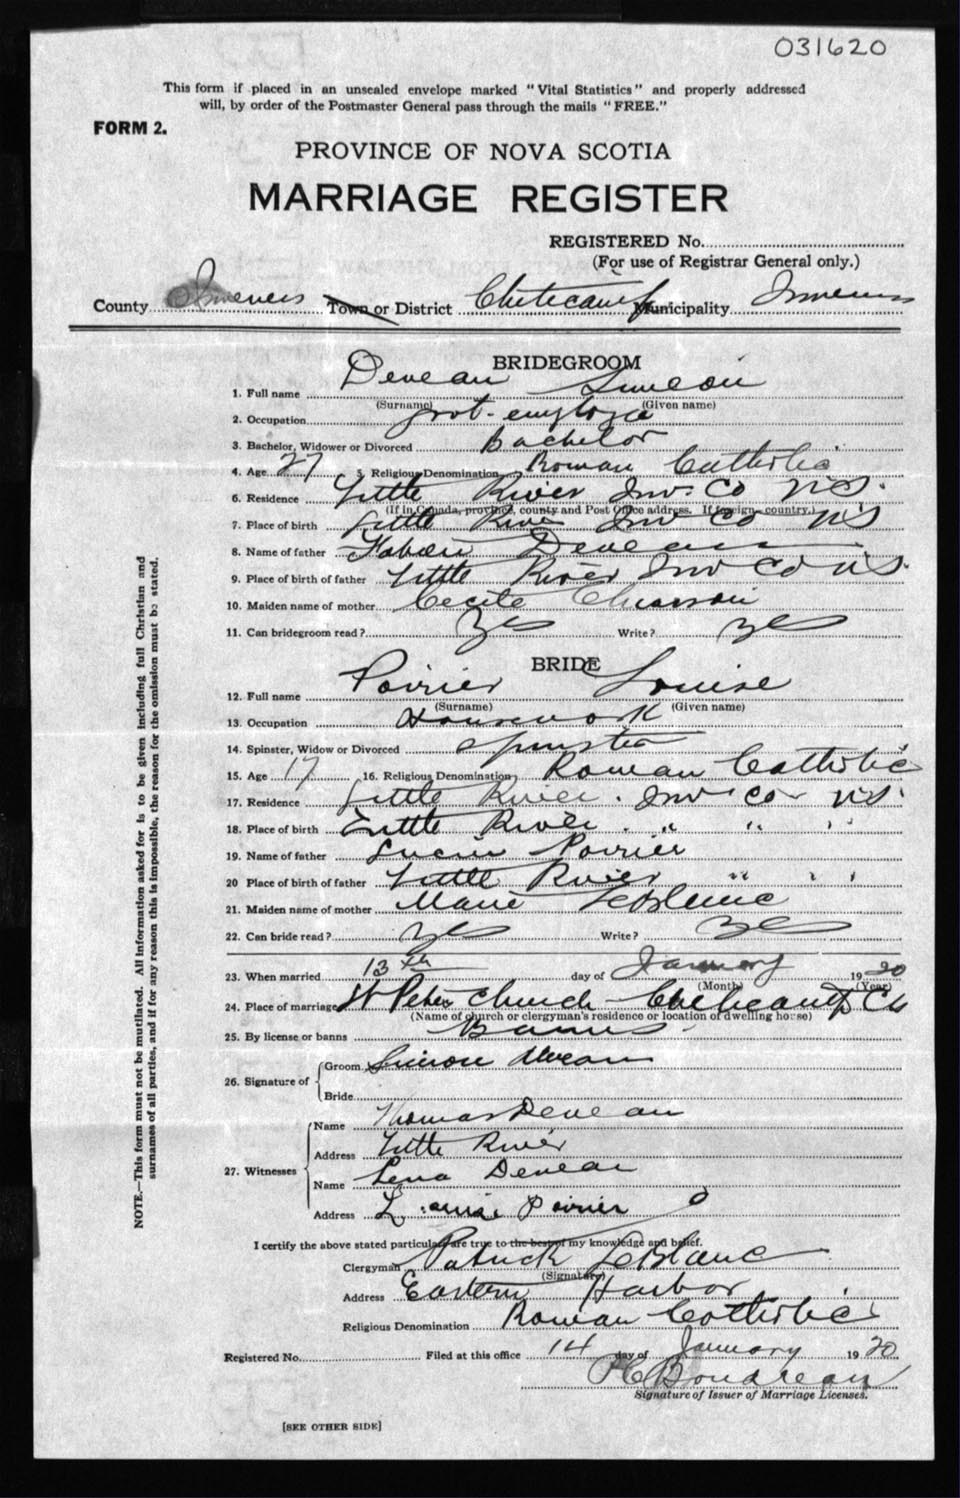 031620
This form if placed in an unsealed envelope marked "Vital Statistics" and properly addressed
will, by order of the Postmaster General pass through the mails "FREE."
FORM 2.
PROVINCE OF NOVA SCOTIA
MARRIAGE REGISTER
REGISTERED No.
(For use of Registrar General only.)
County Inverness Town or District Cheticamp Municipality Inverness
BRIDEGROOM
1. Full name Deveau Simeon
(Surname) (Given name)
2. Occupation
3. Bachelor, Widower or Divorced Bachelor
4. Age 27 5. Religious Denomination Roman Catholic
6. Residence Little River Inv. Co N.S.
(If in Canada, province, county and Post Office address. If foreign—country.)
7. Place of birth Little River Inv Co N S
8. Name of father Deveau
9. Place of birth of father Little River Inv Co N S.
10. Maiden name of mother Cecile Chiasson
11. Can bridegroom read? Yes Write? Yes
BRIDE
12. Full name Poirier Louise
(Surname) (Given name)
13. Occupation Housework
14. Spinster, Widow or Divorced Spinster
15. Age 17 16. Religious Denomination Roman Catholic
17. Residence Little River. Inv Co N.S.
18. Place of birth Little River. " " "
19. Name of father Lucien Poirier
20 Place of birth of father Little River " " "
21. Maiden name of mother Marie LeBlanc
22. Can bride read? Yes Write? Yes
23. When married 13 th day of January 1920
(Month) (Year)
24. Place of marriage St Peter Church Cheticamp
(Name of church or clergyman's residence or location of dwelling house)
25. By license or banns Banns
26. Signature of Groom Simeon Deveau
Bride
27. Witnesses Name Thomas Deveau
Address Little River
Name Lena Deveau
Address Louise Poirier
I certify the above stated particulars are true to the best of my knowledge and belief.
Clergyman Patrick LeBlanc
(Signature)
Address Eastern Harbor
Religious Denomination Roman Catholic
Registered No. Filed at this office 14 day of January 1920
Boudreau
Signature of Issuer of Marriage Licenses.
[SEE OTHER SIDE]
NOTE.—This form must not be mutilated. All information asked for is to be given including full Christian and
surnames of all parties, and if for any reason this is impossible, the reason for the omission must be stated.